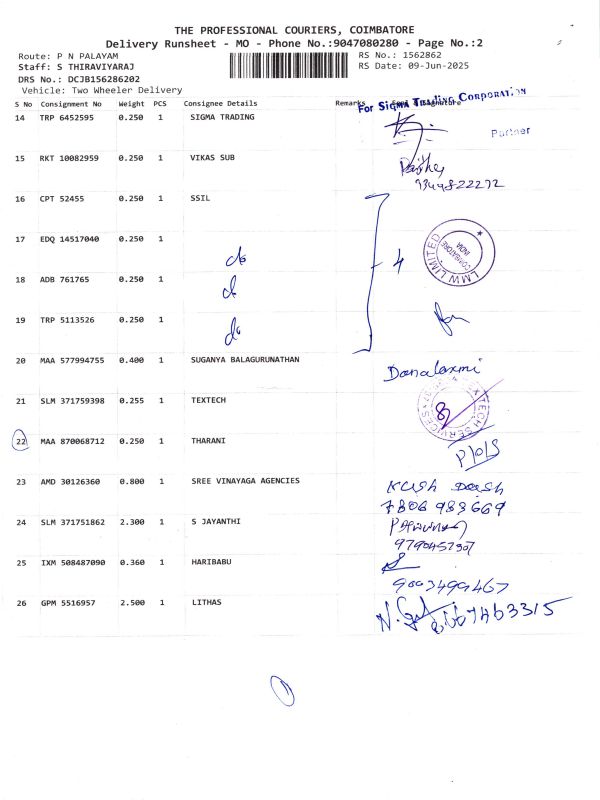 THE PROFESSIONAL COURIERS, COIMBATORE
Delivery Runsheet - MO - Phone No.:9047080280 - Page No.:2
Route: P N PALAYAM
RS No.: 1562862
Staff: S THIRAVIYARAJ
RS Date: 09-Jun-2025
DRS No.: DCJB156286202
Vehicle: Two Wheeler Delivery
S No Consignment No Weight PCS Consignee Details Remarks
For SIGMA TRADING CORPORATION
14 TRP 6452595 0.250 1 SIGMA TRADING
Partner
15 RKT 10082959 0.250 1 VIKAS SUB
16 CPT 52455 0.250 1 SSIL
17 EDQ 14517040 0.250 1
4
LMW LIMITED
COIMBATORE
INDIA
18 ADB 761765 0.250 1
19 TRP 5113526 0.250 1
20 MAA 577994755 0.400 1 SUGANYA BALAGURUNATHAN
Danalaxmi
21 SLM 371759398 0.255 1 TEXTECH
TECH SERVICES
22 MAA 870068712 0.250 1 THARANI
23 AMD 30126360 0.800 1 SREE VINAYAGA AGENCIES
7806983669
24 SLM 371751862 2.300 1 S JAYANTHI
25 IXM 508487090 0.360 1 HARIBABU
9003499467
26 GPM 5516957 2.500 1 LITHAS